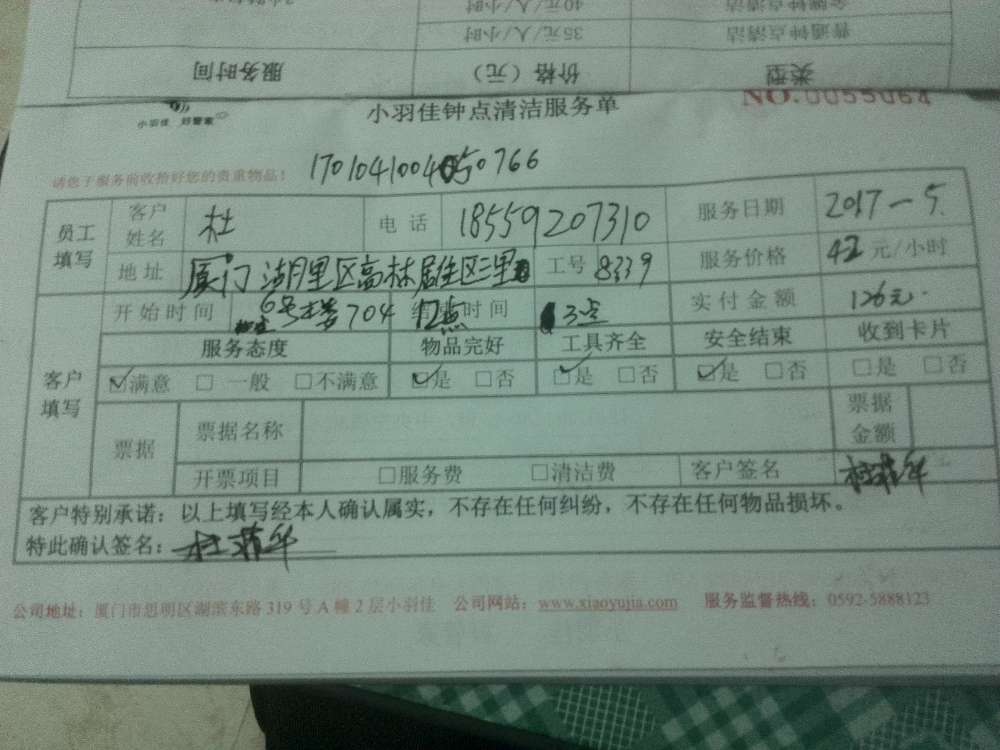 40元/人/小时
普通钟点清洁 35元/人/小时
类型 价格（元） 服务时间
小羽佳 好管家
小羽佳钟点清洁服务单
NO.0055064
请您于服务前收拾好您的贵重物品！
员工填写 客户姓名 杜 电话 18559207310 服务日期 2017-5.
地址 厦门湖里区高林居住区三里 工号 8339 服务价格 42元/小时
6号楼704
开始时间 12点 结束时间 3点 实付金额 126元.
客户填写 服务态度 物品完好 工具齐全 安全结束 收到卡片
☑满意 □一般 □不满意 ☑是 □否 ☑是 □否 ☑是 □否 □是 □否
票据 票据名称 票据金额
开票项目 □服务费 □清洁费 客户签名
客户特别承诺：以上填写经本人确认属实，不存在任何纠纷，不存在任何物品损坏。
特此确认签名：
公司地址：厦门市思明区湖滨东路319号A幢2层小羽佳 公司网站：www.xiaoyujia.com 服务监督热线：0592-5888123